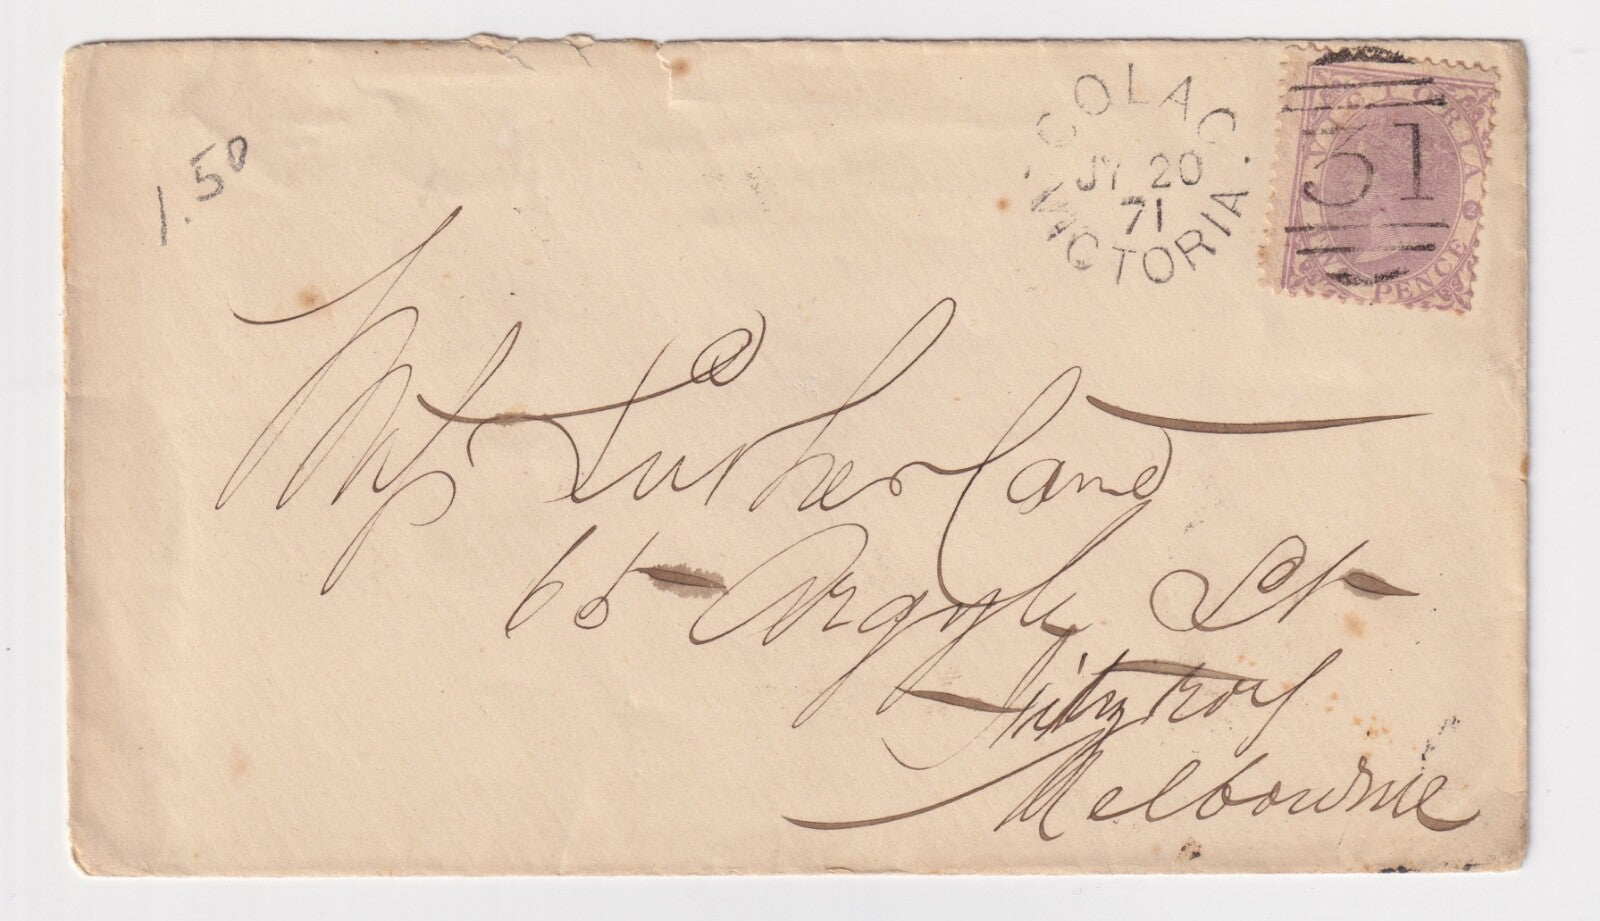 1.50
COLAC
JY 20
71
VICTORIA
VICTORIA
31
2
TWO PENCE
Miss Sutherland
65 Argyle St
Fitzroy
Melbourne